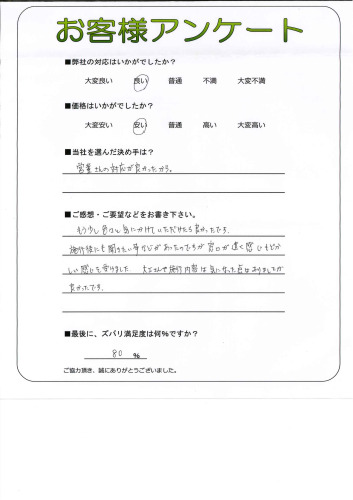 お客様アンケート
■弊社の対応はいかがでしたか?
大変良い 良い 普通 不満 大変不満
■価格はいかがでしたか?
大変安い 安い 普通 高い 大変高い
■当社を選んだ決め手は?
営業さんの対応が良かったから。
■ご感想・ご要望などをお書き下さい。
もう少し 気にかけていただけたら良かったです。
施行後にも聞きたい事などがあったのですが窓口が遠く感じもどか
しい感じを受けました 大工さんや施行内容は気になった点はありましたが
良かったです。
■最後に、ズバリ満足度は何%ですか?
80 %
ご協力頂き、誠にありがとうございました。